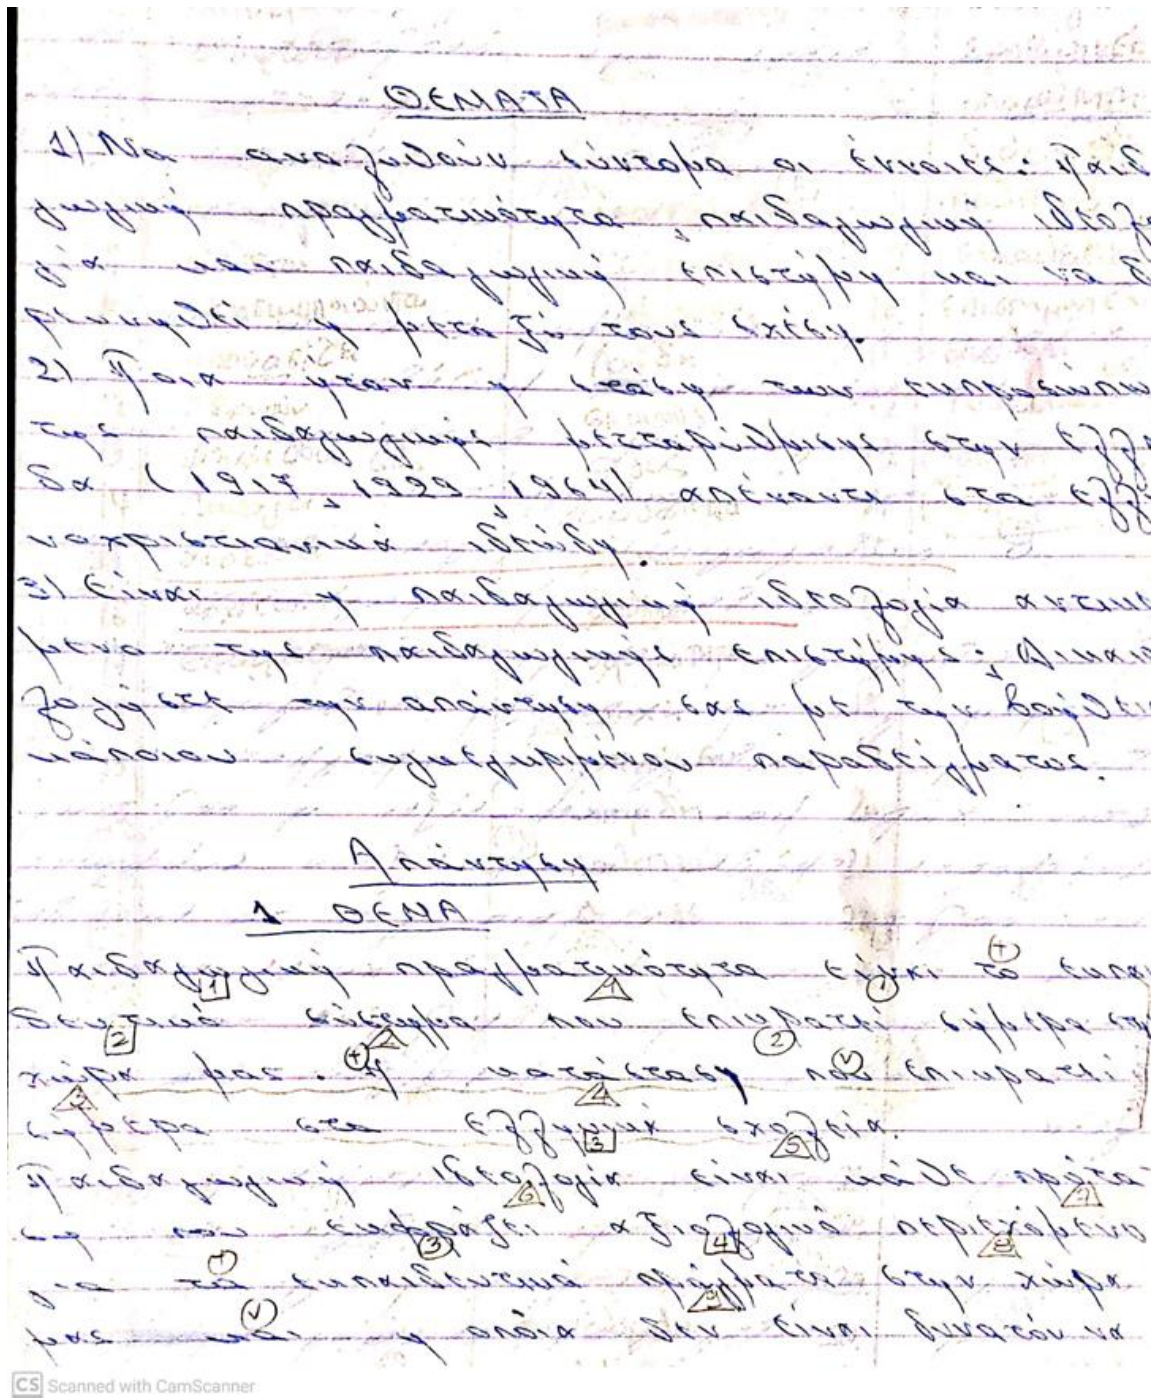 ΘΕΜΑΤΑ
1) Να αναλυθούν σύντομα οι έννοιες: Παιδ
γωγική πραγματικότητα, παιδαγωγική ιδεολο
γία και παιδαγωγική επιστήμη και να δ
ρευνηθεί η μεταξύ τους σχέση.
2) Ποια ήταν η στάση των εκπροσώπω
της παιδαγωγικής μεταρρύθμισης στην Ελλ
δα (1917, 1929, 1964) απέναντι στα ελλη
νοχριστιανικά ιδεώδη.
3) Είναι η παιδαγωγική ιδεολογία αντικε
μενο της παιδαγωγικής επιστήμης; Δικαι
λογήστε την απάντηση σας με την βοήθει
κάποιου συγκεκριμένου παραδείγματος.
Απάντηση
1 ΘΕΜΑ
Παιδαγωγική πραγματικότητα είναι το εκπαι
δευτικό σύστημα που επικρατεί σήμερα στη
χώρα μας. Η κατάσταση που επικρατεί
σήμερα στα ελληνικά σχολεία.
Παιδαγωγική ιδεολογία είναι κάθε πρότα
ση που εκφράζει αξιολογικό περιεχόμενο
για τα εκπαιδευτικά πράγματα στην χώρα
μας και η οποία δεν είναι δυνατόν να
CS Scanned with CamScanner